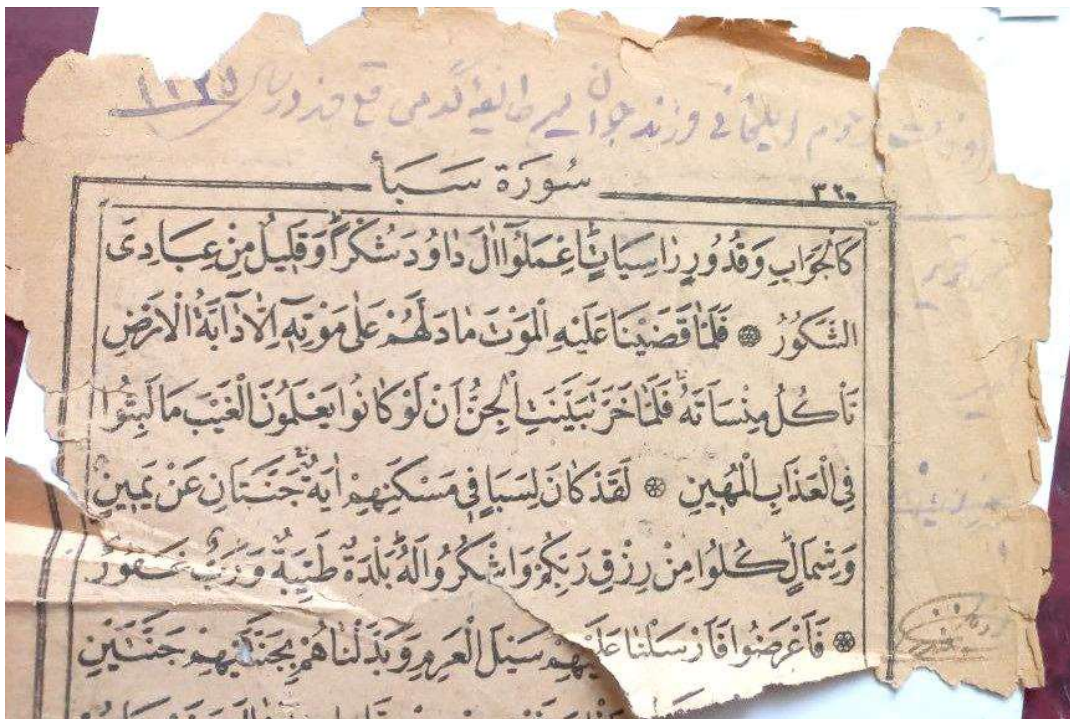 ایلخانی فرزند جوان
٣٢٠ سُورَة سَبَأ
كَالْجَوَابِ وَقُدُورٍ رٰاسِيَاتٍ اِعْمَلُوٓا اٰلَ دٰاوُدَ شُكْرًا وَقَلِيلٌ مِنْ عِبَادِىَ
الشَّكُورُ ۝ فَلَمّٰا قَضَيْنَا عَلَيْهِ الْمَوْتَ مٰا دَلَّهُمْ عَلٰى مَوْتِهِٓ اِلّٰا دٰابَّةُ الْاَرْضِ
تَأْكُلُ مِنْسَاَتَهُ فَلَمّٰا خَرَّ تَبَيَّنَتِ الْجِنُّ اَنْ لَوْ كٰانُوا يَعْلَمُونَ الْغَيْبَ مَا لَبِثُوا
فِى الْعَذَابِ الْمُهِينِ ۝ لَقَدْ كٰانَ لِسَبَاٍ فِى مَسْكَنِهِمْ اٰيَةٌ جَنَّتَانِ عَنْ يَمِينٍ
وَشِمَالٍ كُلُوا مِنْ رِزْقِ رَبِّكُمْ وَاشْكُرُوا لَهُ بَلْدَةٌ طَيِّبَةٌ وَرَبٌّ غَفُورٌ
۝ فَاَعْرَضُوا فَاَرْسَلْنٰا عَلَيْهِمْ سَيْلَ الْعَرِمِ وَبَدَّلْنٰاهُمْ بِجَنَّتَيْهِمْ جَنَّتَيْنِ